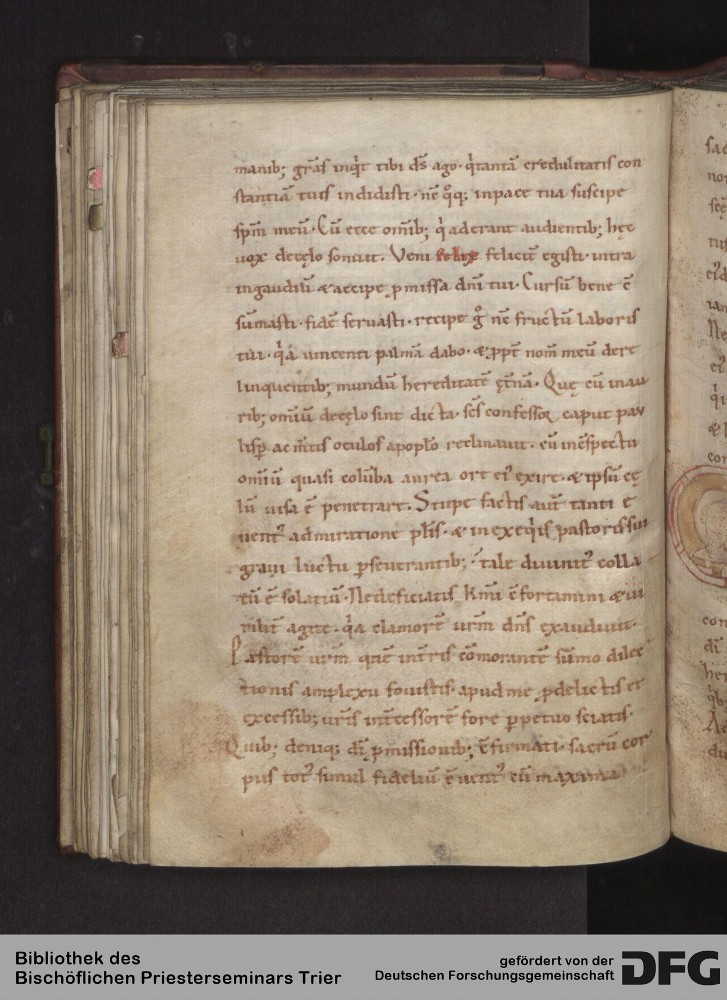 manib; gr̄as inq̇t tibi ds̄ ago · q̇ tantā credulitatis con
stantiā tuis indidisti · nē q̊q; inpace tua suscipe
sp̄m meū · Cū ecce omīb; q̇ aderant audientib; hęc
uox decęlo sonuit. Veni felix felicū egisti · intra
ingaudiū & accipe p̄missa dn̄i tui · Cursū bene c̄
sūmasti · fidē seruasti · recipe g̊ nc̄ fructū laboris
tui · q̇a uincenti palmā dabo · & ꝓpt̄ nom̄ meū dere
linquentib; mundū hereditatē ęt̄nā · Quę cū in au
rib; omiū decęlo sint dicta · sc̄s confessor caput pau
lisp̱ ac m̄tis oculos apopl̄o reclinauit · cū inc̄spectu
omiū quasi colūba aurea ore ei᷒ exire · & ipsū cę
lū uisa ē penetrare · Stupefactis aut̄ tanti e
uent᷒ admiratione pl̄is · & in exeq̇is pastoris sui
graui luctu p̱seuerantib; · tale diuinit᷒ colla
tū ē solatiū · Ne deficiatis km̄i c̄fortamini & ui
rilit̄ agite · q̇a clamorē urm̄ dn̄s exaudiuit ·
Pastorē urm̄ quē int̄ris cōmorantē sūmo dilec
tionis amplexu fouistis · apud me ꝓ delictis et
excessib; uris̄ int̄cessorē fore p̱petuo sciatis ·
Quib; deniq; dī ꝓmissionib; c̄firmati · sacrū cor
pus tot᷒ simul fideliū c̄uent᷒ cū maxima
Bibliothek des
Bischöflichen Priesterseminars Trier
gefördert von der
Deutschen Forschungsgemeinschaft
DFG